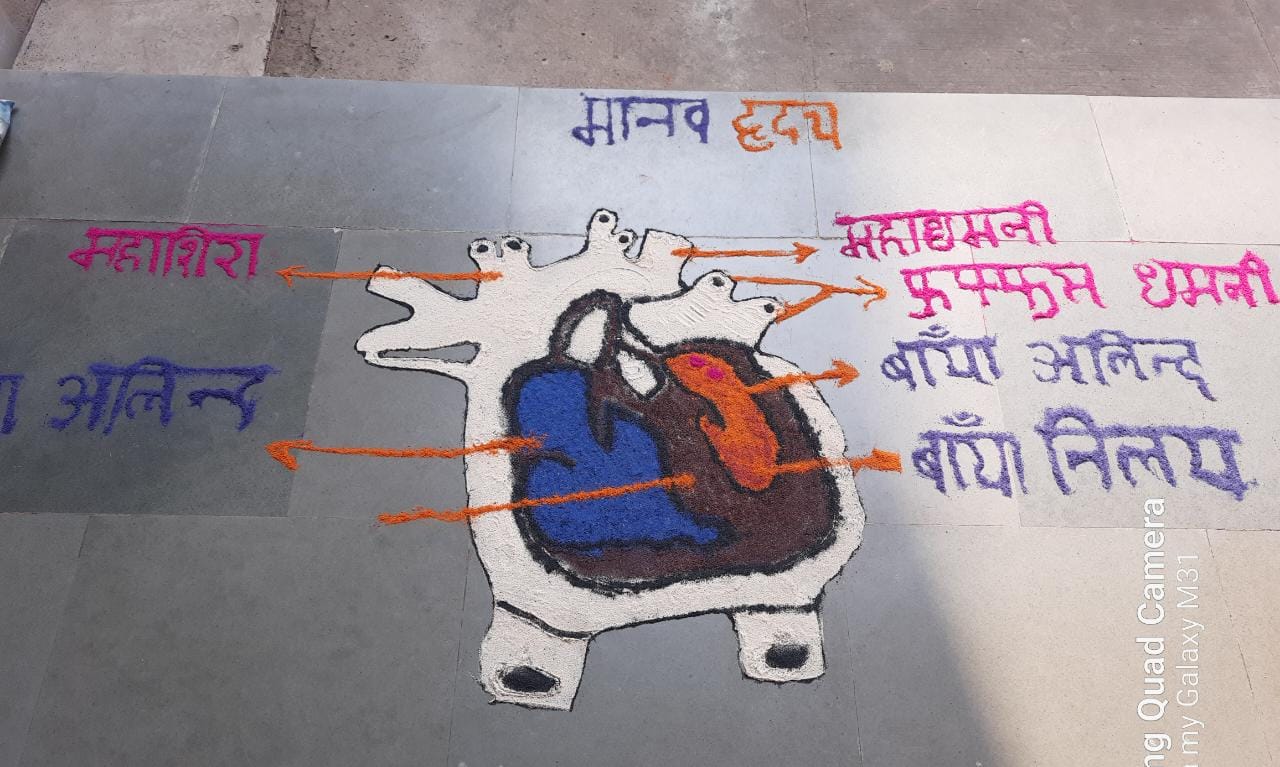 मानव हृदय
महाशिरा
महाधमनी
फुफ्फुस धमनी
बाँया अलिन्द
बाँया निलय
अलिन्द
ng Quad Camera
my Galaxy M31